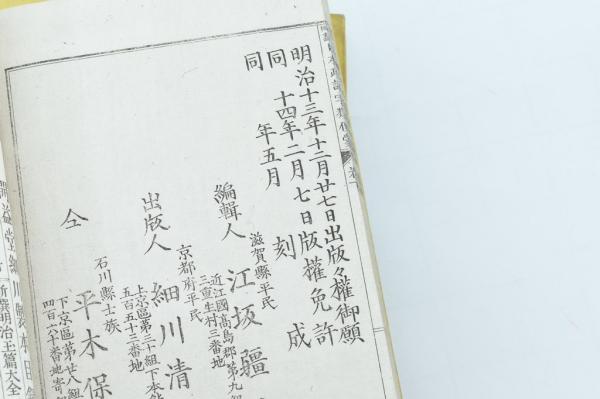 明治十三年十二月廿七日出版々權御願
同十四年二月七日版權免許
同年五月刻成
編輯人
滋賀縣平民
江坂彊
近江國高島郡第九組
三重生村三番地
出版人
京都府平民
細川清
上京區第三十組下本能
五百五十三番地
仝
石川縣士族
平木保
下京區第廿八組
四百六十番地寄
新撰明治玉篇大全